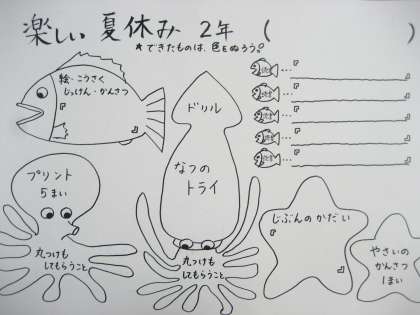 楽しい 夏休み 2年 (　　　)
*できたものは、色をぬろう。
絵・こうさく
じっけん・かんさつ
『
』
ドリル
なつの
トライ
丸つけも
してもらうこと
プリント
5まい
丸つけも
してもらうこと
…『
』
…『
』
…『
』
…『
』
…『
』
じぶんのかだい
『
』
やさいの
かんさつ
1まい